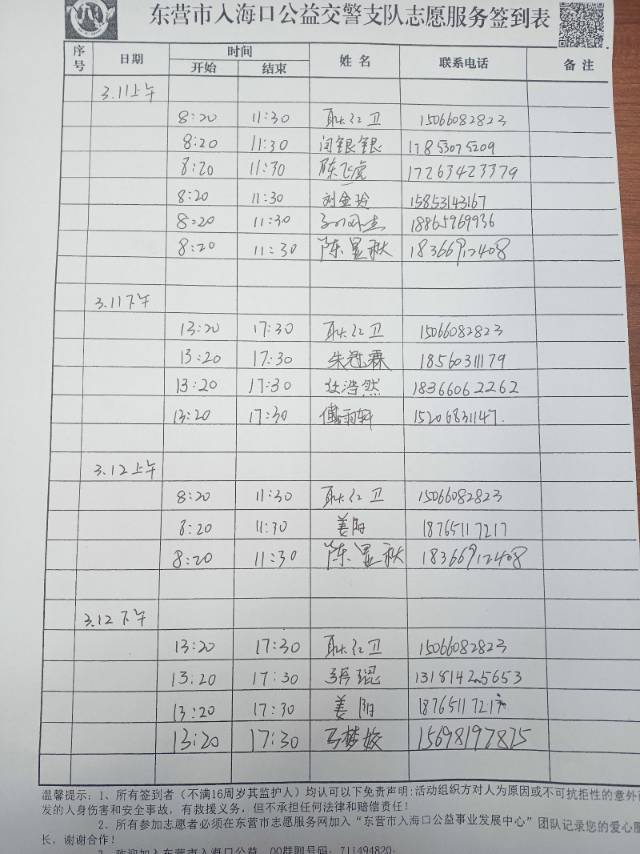 东营市入海口公益交警支队志愿服务签到表
序号 日期 时间 姓名 联系电话 备注
开始 结束
3.11上午
8:20 11:30 耿红卫 15066082823
8:20 11:30 闫银银 17853075209
8:20 11:30 陈飞虎 17263423379
8:20 11:30 刘金玲 15853143167
8:20 11:30 18865969936
8:20 11:30 陈显秋 18366912408
3.11下午
13:20 17:30 耿红卫 15066082823
13:20 17:30 朱冠霖 18560311179
13:20 17:30 浩然 18366062262
13:20 17:30 傅雨轩 15206831147.
3.12上午
8:20 11:30 耿红卫 15066082823
8:20 11:30 姜阳 18765117217
8:20 11:30 陈显秋 18366912408
3.12下午
13:20 17:30 耿红卫 15066082823
13:20 17:30 13181425653
13:20 17:30 姜阳 18765117217
13:20 17:30 马梦姣 15698197825
温馨提示:1、所有签到者(不满16周岁其监护人)均认可以下免责声明:活动组织方对人为原因或不可抗拒性的意外
发的人身伤害和安全事故,有救援义务,但不承担任何法律和赔偿责任!
2、所有参加志愿者必须在东营市志愿服务网加入“东营市入海口公益事业发展中心”团队记录您的爱心服
长,谢谢合作!
3、欢迎加入东营市入海口公益 QQ群号码:711494820